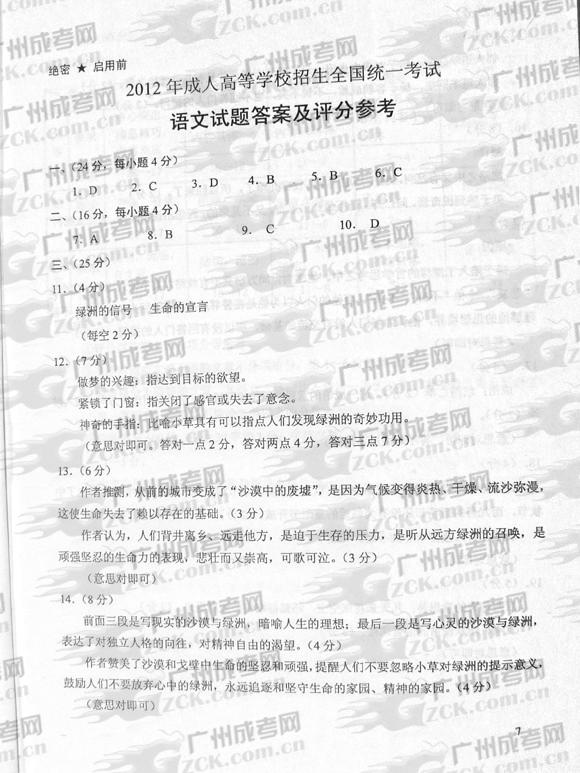 绝密 ★ 启用前
2012 年成人高等学校招生全国统一考试
语文试题答案及评分参考
一、（24 分，每小题 4 分）
1．D 2．C 3．D 4．B 5．B 6．C
二、（16 分，每小题 4 分）
7．A 8．B 9．C 10．D
三、（25 分）
11．（4 分）
绿洲的信号 生命的宣言
（每空 2 分）
12．（7 分）
做梦的兴趣：指达到目标的欲望。
紧锁了门窗：指关闭了感官或失去了意念。
神奇的手指：比喻小草具有可以指点人们发现绿洲的奇妙功用。
（意思对即可。答对一点 2 分，答对两点 4 分，答对三点 7 分）
13．（6 分）
作者推测，从前的城市变成了“沙漠中的废墟”，是因为气候变得炎热、干燥、流沙弥漫，
这使生命失去了赖以存在的基础。（3 分）
作者认为，人们背井离乡、远走他方，是迫于生存的压力，是听从远方绿洲的召唤，是
顽强坚忍的生命力的表现，悲壮而又崇高，可歌可泣。（3 分）
（意思对即可）
14．（8 分）
前面三段是写现实的沙漠与绿洲，暗喻人生的理想；最后一段是写心灵的沙漠与绿洲，
表达了对独立人格的向往，对精神自由的渴望。（4 分）
作者赞美了沙漠和戈壁中生命的坚忍和顽强，提醒人们不要忽略小草对绿洲的提示意义，
鼓励人们不要放弃心中的绿洲，永远追逐和坚守生命的家园、精神的家园。（4 分）
（意思对即可）
7
广州成考网
GZCK.com.cn